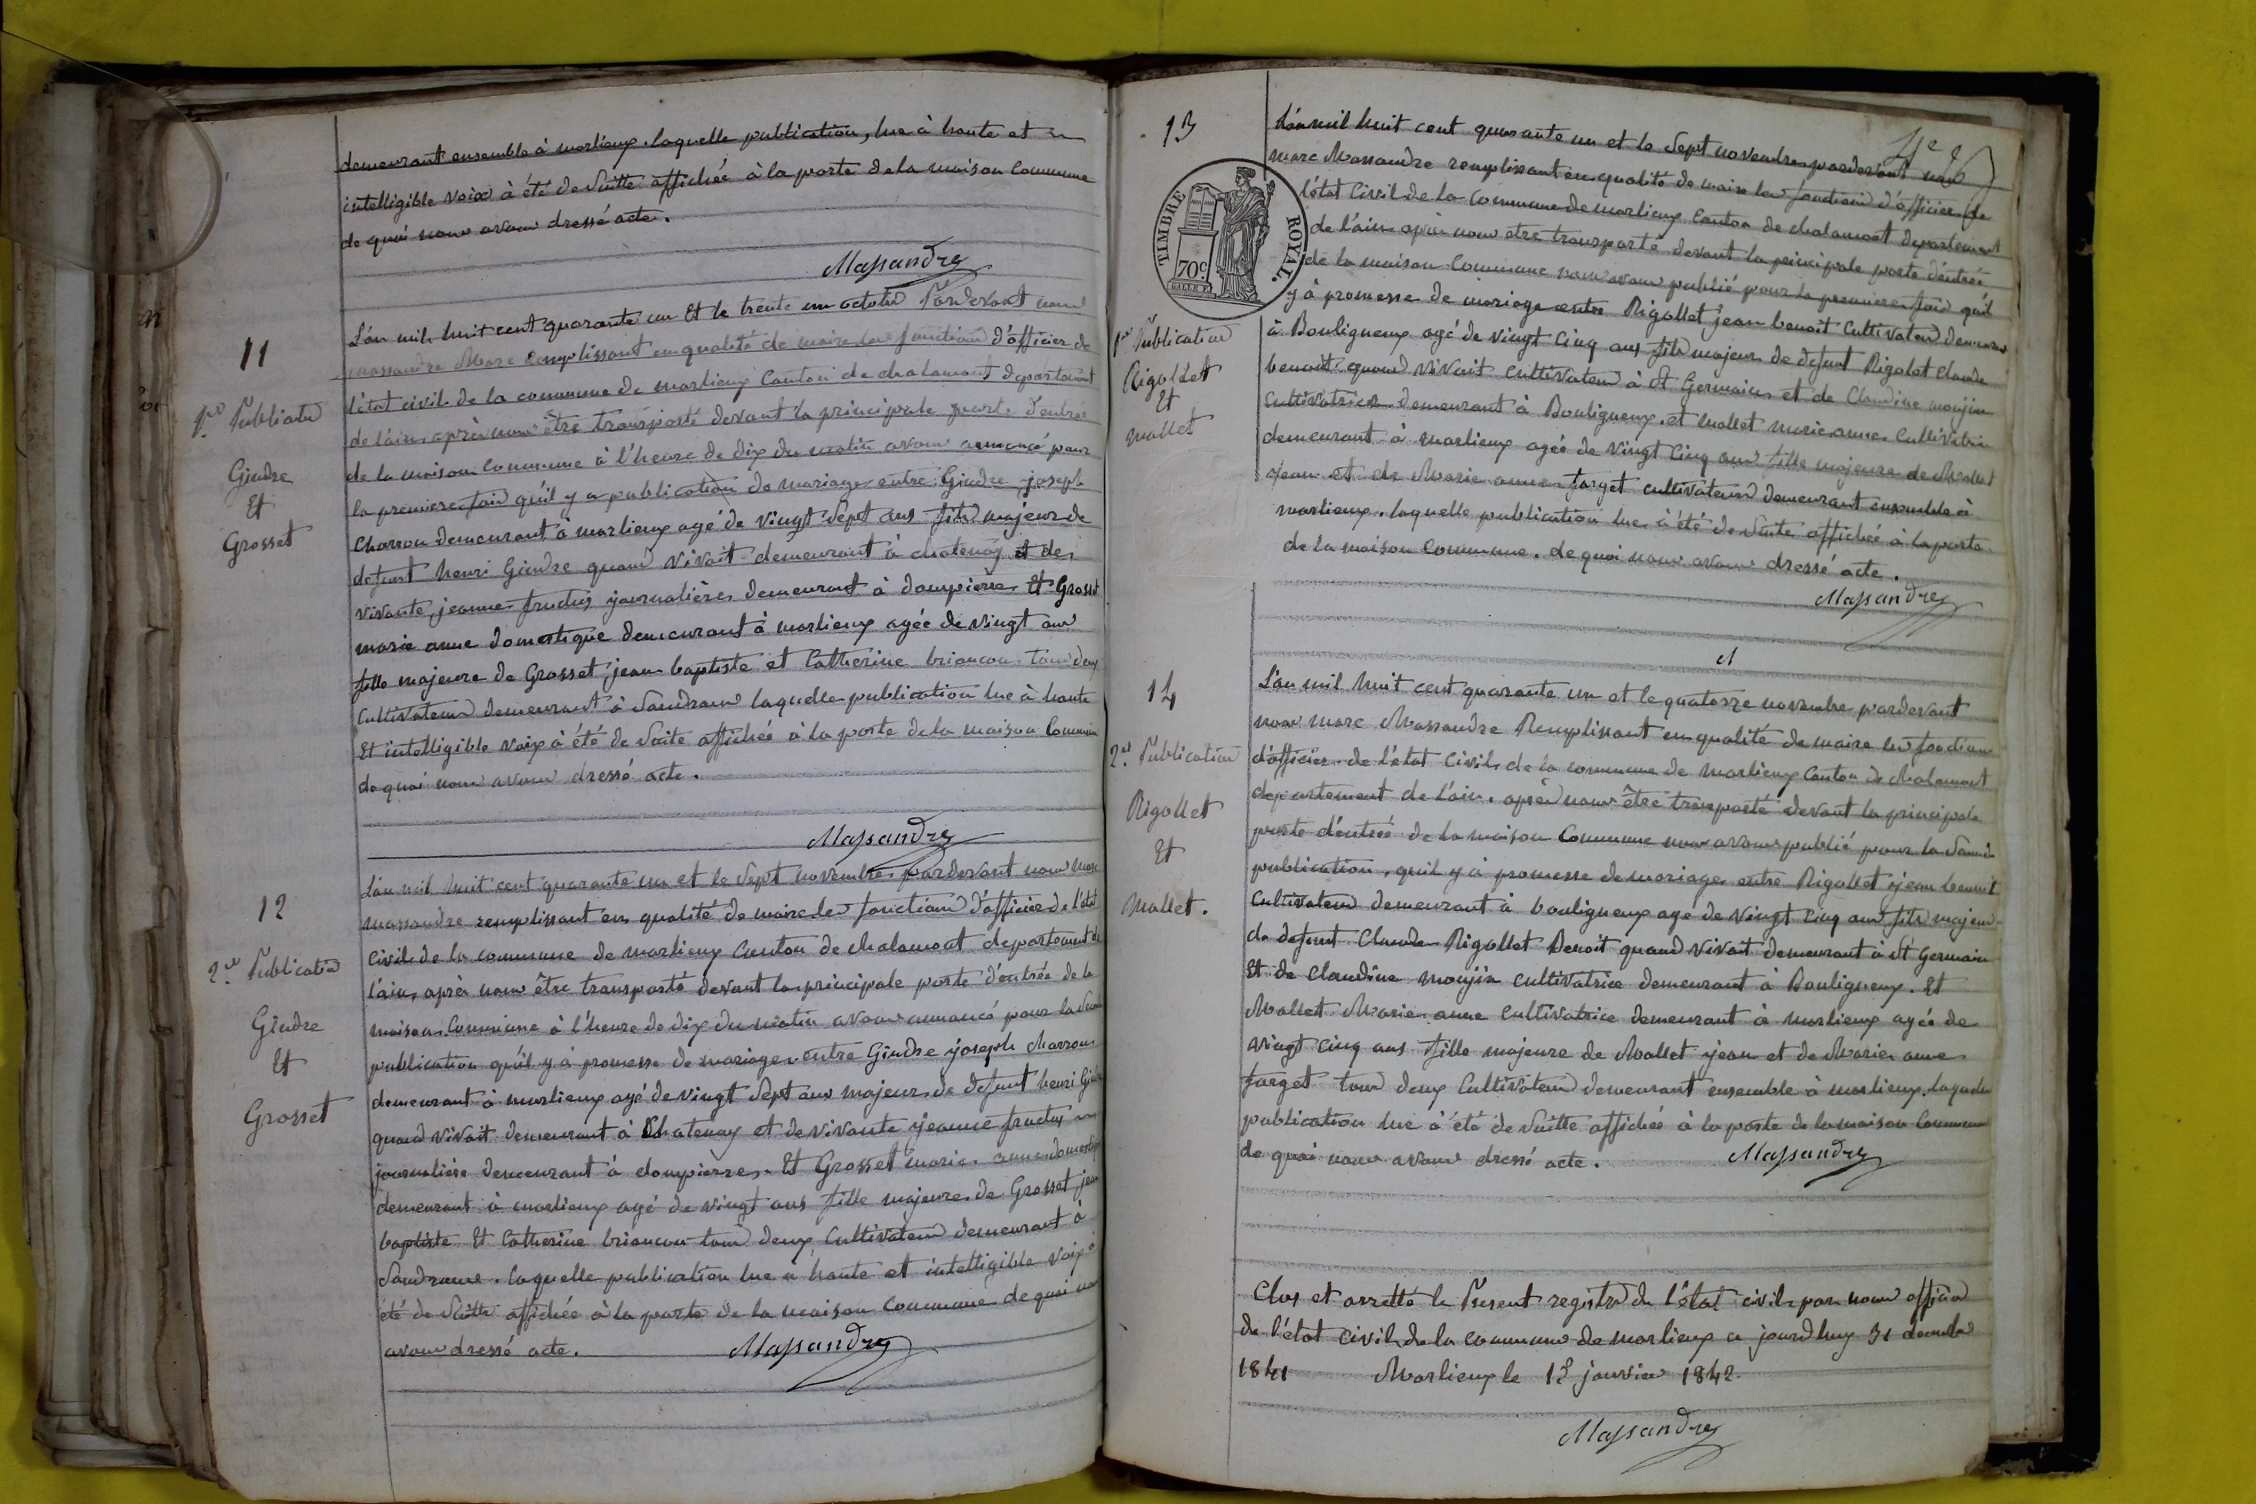 demeurant ensemble à marlieux. laquelle publication, lue à haute et
intelligible voix à été de suitte affichée à la porte de la maison Commune
de quoi nous avons dressé acte.
Massandre
11
1re Publication
Gindre
Et
Grosset
L'an mil huit cent quarante un Et le trente un octobre Pardevant nous
massandre Marc remplissant en qualité de maire les fonctions d'officier de
l'état civil de la commune de marlieux Canton de chalamont departement
de l'ain, après nous être transporté devant la principale porte d'entrée
de la maison Commune à l'heure de dix du matin avons annoncé pour
la premiere fois qu'il y a publication de mariage entre Gindre joseph
Charron demeurant à marlieux agé de vingt Sept ans fils majeur de
defunt henri Gindre quand vivait demeurant à chatenay et de
vivante jeanne fructus journalière demeurant à dompierre Et Grosset
marie anne domestique demeurant à marlieux agée de vingt ans
fille majeure de Grosset jean baptiste et Catherine briancon tous deux
Cultivateurs demeurant à Sandrans laquelle publication lue à haute
Et intelligible voix à été de Suite affichée à la porte de la maison Commune
de quoi nous avons dressé acte.
Massandre
12
2me Publication
Gindre
Et
Grosset
L'an mil huit cent quarante un et le Sept novembre pardevant nous marc
massandre remplissant en qualité de maire les fonctions d'officier de l'état
civil de la commune de marlieux Canton de chalamont departement de
l'ain, après nous être transporté devant la principale porte d'entrée de la
maison Commune à l'heure de dix du matin avons annoncé pour la
publication qu'il y à promesse de mariage entre Gindre joseph charron
demeurant à marlieux agé de vingt Sept ans majeur de defunt henri Gindre
quand vivait demeurant à Chatenay et de vivante jeanne fructus
journalière demeurant à dompierre. Et Grosset marie anne domestique
demeurant à marlieux agé de vingt ans fille majeure de Grosset jean
baptiste Et Catherine briancon tous deux Cultivateurs demeurant à
Sandrans. laquelle publication lue à haute et intelligible voix à
été de Suitte affichée à la porte de la maison commune de quoi nous
avons dressé acte. Massandre
13
TIMBRE ROYAL.
70c
1re Publication
Rigollet
Et
mallet
L'an mil huit cent quarante un et le Sept novembre pardevant nous
marc Massandre remplissant en qualité de maire les fonctions d'officier de
l'état Civil de la Commune de marlieux Canton de chalamont departement
de l'ain après nous être transporté devant la principale porte d'entrée
de la maison Commune nous avons publié pour la premiere fois qu'il
y à promesse de mariage entre Rigollet jean benoit Cultivateur demeurant
à Bouligneux agé de vingt Cinq ans fils majeur de defunt Rigolet Claude
benoit quand vivait cultivateur à St Germain et de Claudine moujin
Cultivatrice demeurant à Bouligneux. et mallet marie anne Cultivatrice
demeurant à marlieux agée de vingt Cinq ans fille majeure de Mallet
jean et de Marie anne farget cultivateurs demeurant ensemble à
marlieux. laquelle publication lue à été de Suite affichée à la porte
de la maison Commune. de quoi nous avons dressé acte.
Massandre
14
2me Publication
Rigollet
Et
Mallet.
L'an mil huit cent quarante un et le quatorze novembre pardevant
nous marc Massandre Remplissant en qualité de maire les fonctions
d'officier de l'état Civil de la commune de Marlieux Canton de Chalamont
departement de l'ain. après nous être transporté devant la principale
porte d'entrée de la maison Commune nous avons publié pour la
publication, qu'il y à promesse de mariage entre Rigollet jean benoit
Cultivateur demeurant à bouligneux age de vingt cinq ans fils majeur
de defunt Claude Rigollet Benoit quand vivait demeurant à St Germain
Et de Claudine moujin cultivatrice demeurant à Bouligneux. Et
Mallet Marie anne Cultivatrice demeurant à marlieux agée de
vingt cinq ans fille majeure de Mallet jean et de Marie anne
farget tous deux Cultivateurs demeurant ensemble à marlieux. laquelle
publication lue à été de Suitte affichée à la porte de la maison Commune
de quoi nous avons dressé acte. Massandre
Clos et arretté le Present registre de l'état civil par nous officier
de l'état civil de la commune de marlieux ce jourd'huy 31 decembre
1841 Marlieux le 1er janvier 1842.
Massandre